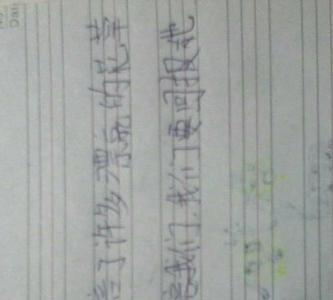 了许多漂亮的花草
我们,我们要回报